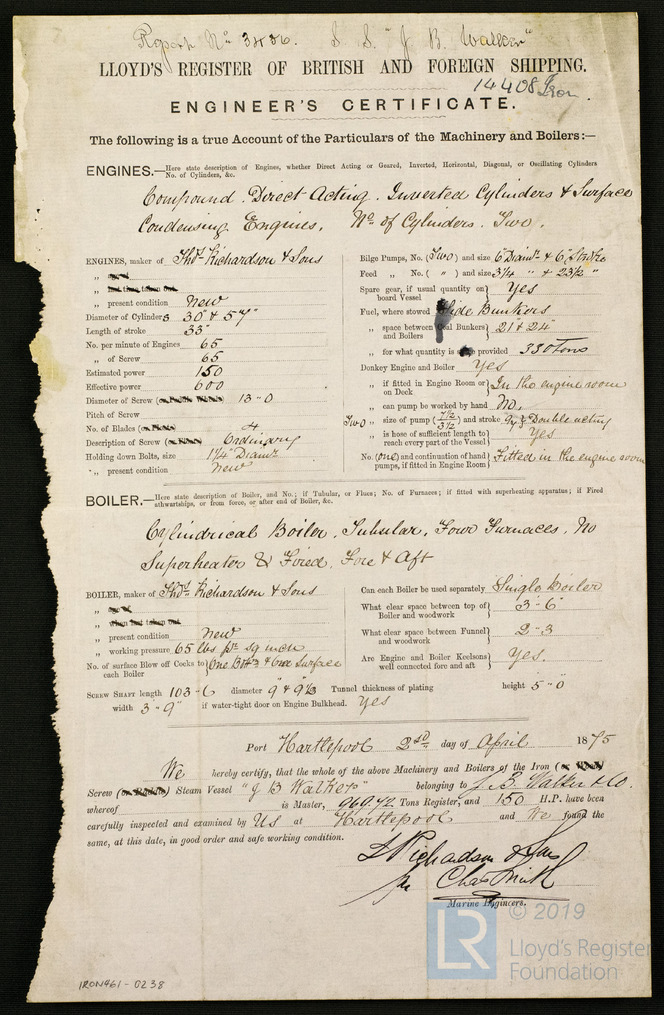 Report No 3436. S. S. "J B. Walker"
LLOYD'S REGISTER OF BRITISH AND FOREIGN SHIPPING.
14408 Iron
ENGINEER'S CERTIFICATE.
The following is a true Account of the Particulars of the Machinery and Boilers:—
ENGINES.—Here state description of Engines, whether Direct Acting or Geared, Inverted, Horizontal, Diagonal, or Oscillating Cylinders
No. of Cylinders, &c.
Compound. Direct Acting. Inverted Cylinders & Surface
Condensing Engines. No. of Cylinders. Two.
ENGINES, maker of Thos. Richardson & Sons
„
„
„ present condition new
Diameter of Cylinders 30" & 57"
Length of stroke 33"
No. per minute of Engines 65
„ of Screw 65
Estimated power 150
Effective power 600
Diameter of Screw 13-0
Pitch of Screw
No. of Blades 4
Description of Screw Ordinary
Holding down Bolts, size 1¼" Diamr
„ „ present condition new
Bilge Pumps, No. (Two) and size 6" Diamr & 6" Stroke
Feed „ No. ( „ ) and size 3¼ " & 23½ "
Spare gear, if usual quantity on board Vessel} Yes
Fuel, where stowed Side Bunkers
„ space between Coal Bunkers and Boilers} 21" & 24"
„ for what quantity is provided 330 Tons
Donkey Engine and Boiler Yes
„ if fitted in Engine Room or on Deck} In the engine room
„ can pump be worked by hand No.
Two „ size of pump (7½ 3½) and stroke Double acting
„ is hose of sufficient length to reach every part of the Vessel} Yes
No. (one) and continuation of hand pumps, if fitted in Engine Room} Fitted in the engine room
BOILER.—Here state description of Boiler, and No.; if Tubular, or Flues; No. of Furnaces; if fitted with superheating apparatus; if Fired
athwartships, or from force, or after end of Boiler, &c.
Cylindrical Boiler. Tubular. Four Furnaces. No
Superheater & Fired. Fore & Aft
BOILER, maker of Thos. Richardson & Sons
„
„
„ present condition new
„ working pressure 65 lbs pr. sq inch
No. of surface Blow off Cocks to each Boiler} One Botm & One Surface
Can each Boiler be used separately Single Boiler
What clear space between top of Boiler and woodwork} 3-6"
What clear space between Funnel and woodwork} 2-3
Are Engine and Boiler Keelsons well connected fore and aft} Yes.
SCREW SHAFT length 103-6 diameter 9" & 9⅓ Tunnel thickness of plating height 5"0
width 3-9" if water-tight door on Engine Bulkhead. Yes
Port Hartlepool 2nd day of April 1875
We hereby certify, that the whole of the above Machinery and Boilers of the Iron
Screw Steam Vessel "J B Walker" belonging to J. B. Walker & Co.
whereof is Master, 960.72 Tons Register, and 150 H.P. have been
carefully inspected and examined by Us at Hartlepool and We found the
same, at this date, in good order and safe working condition.
T Richardson & Sons
pr Chas Smith
Marine Engineers.
IRON461-0238
LR © 2019
Lloyd's Register
Foundation